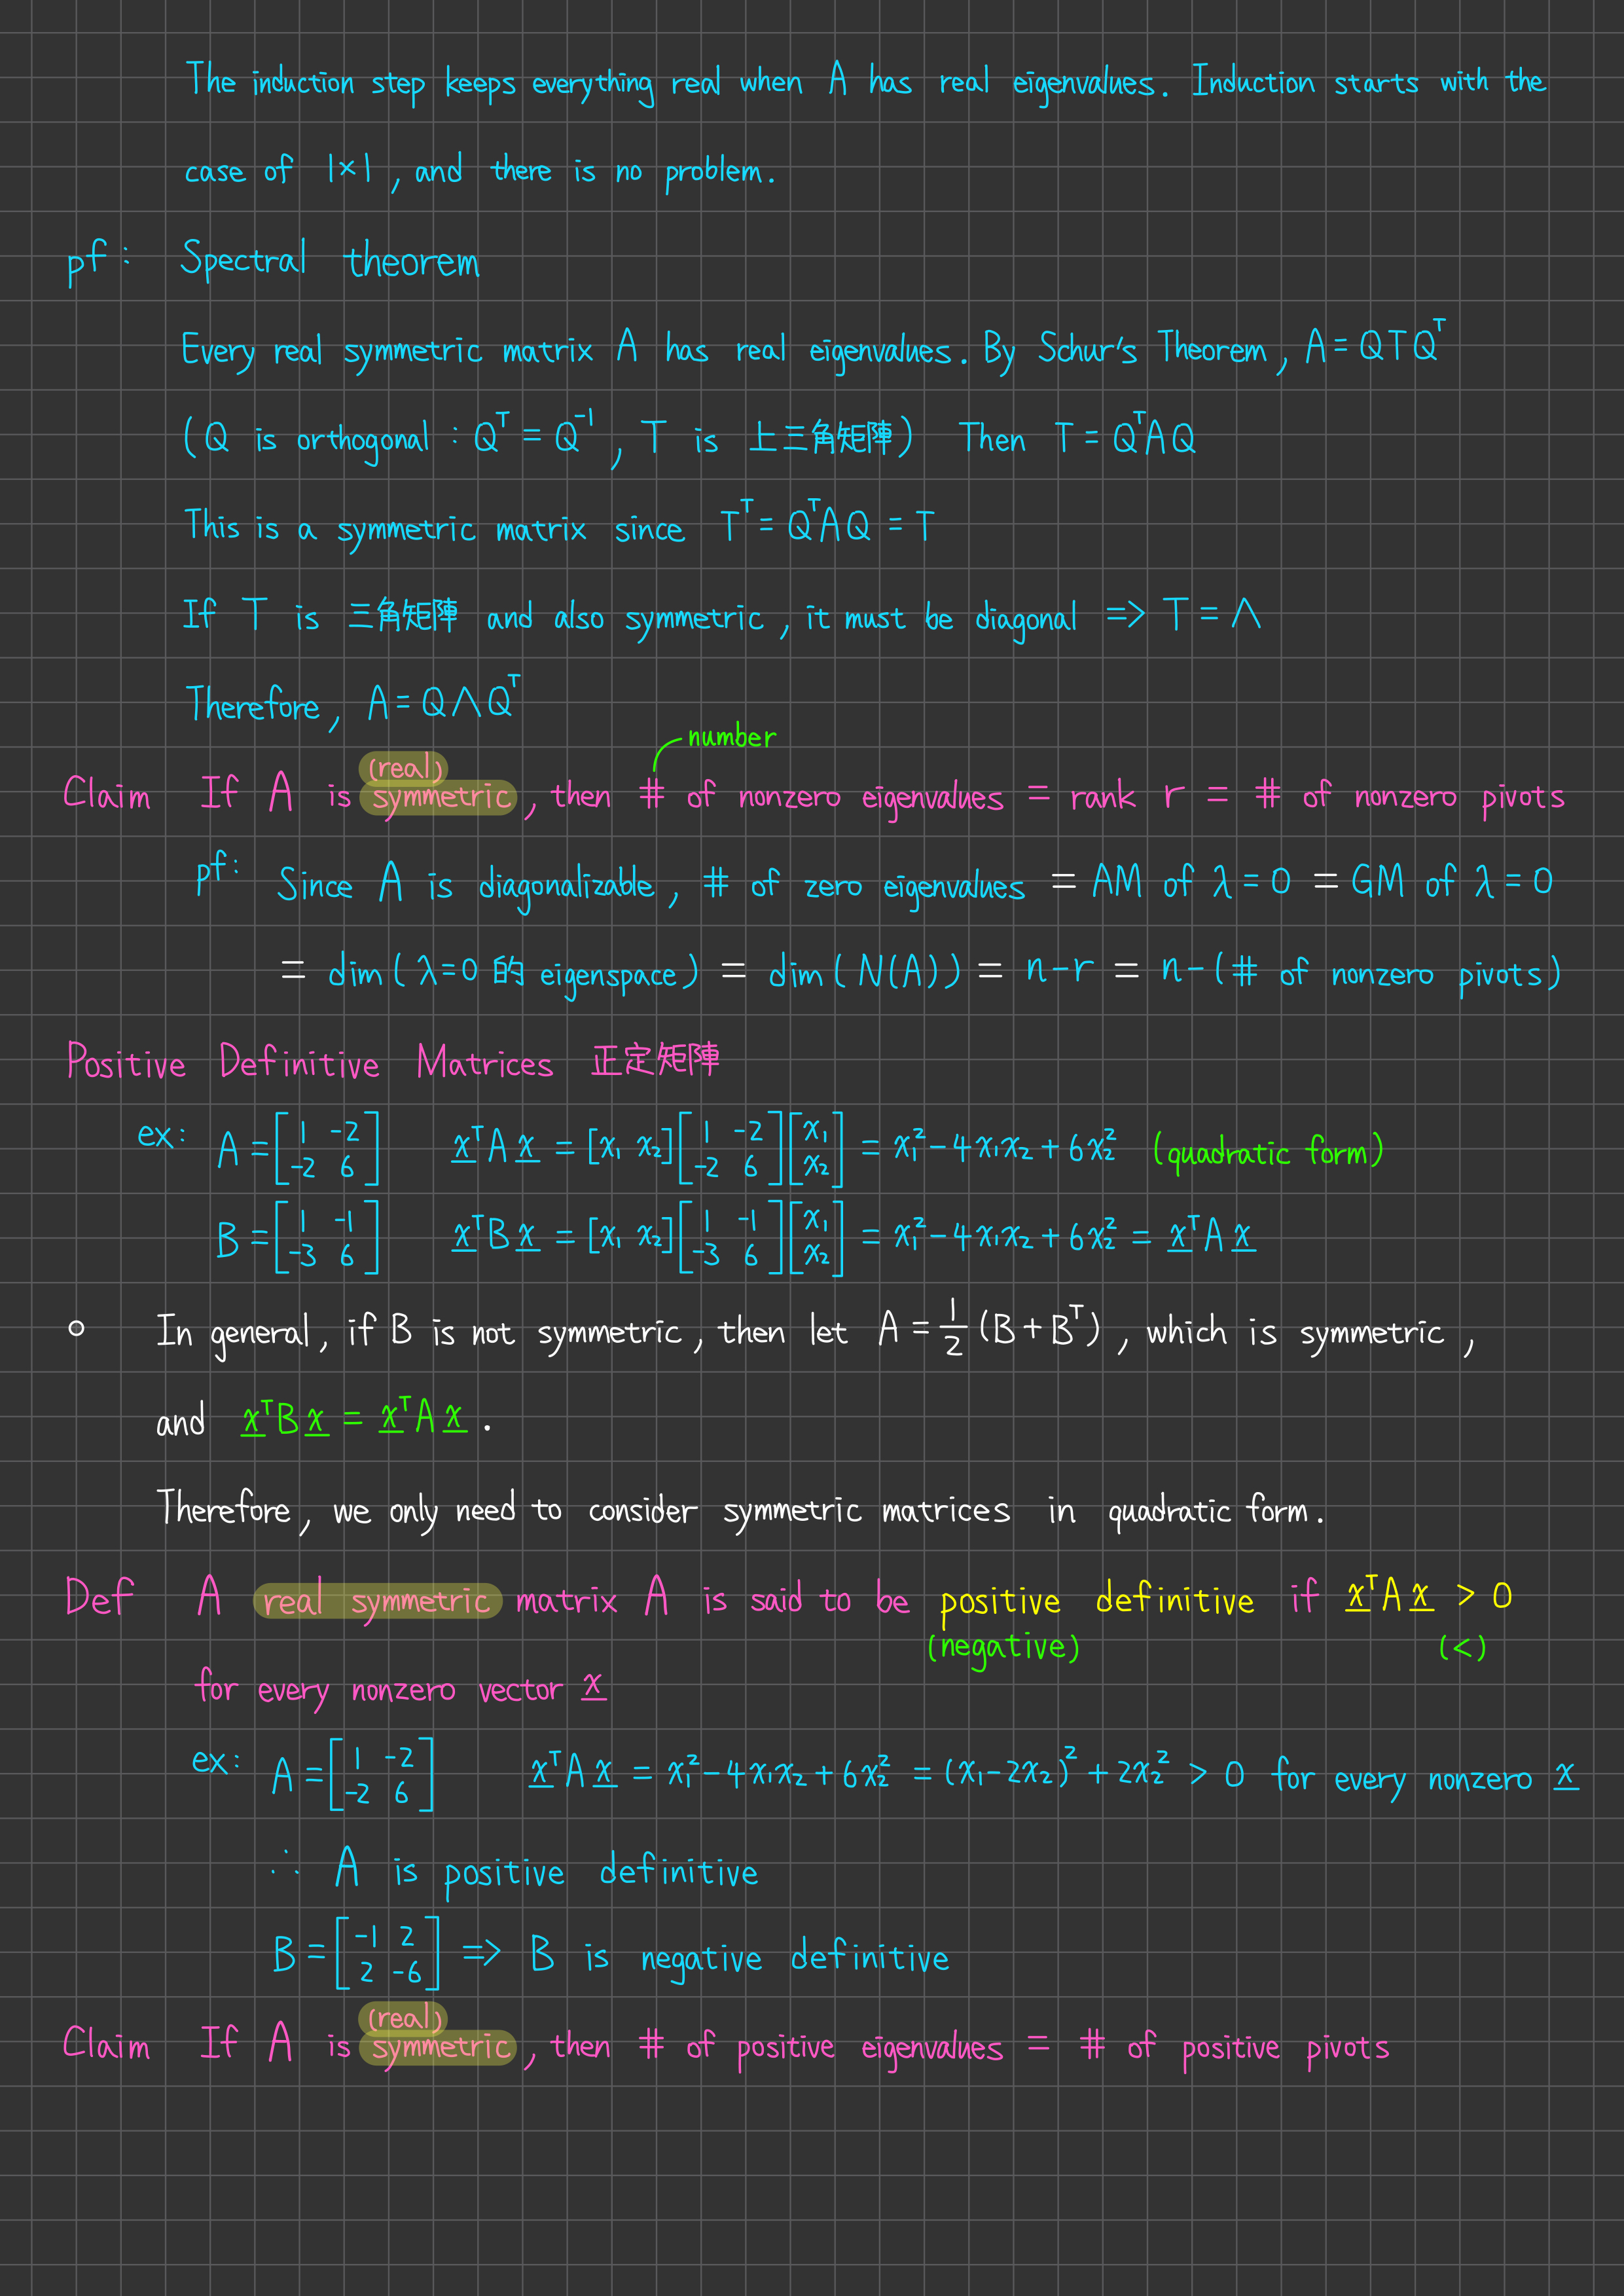 The induction step keeps everything real when A has real eigenvalues. Induction starts with the
case of 1×1, and there is no problem.
pf: Spectral theorem
Every real symmetric matrix A has real eigenvalues. By Schur's Theorem, A = QTQᵀ
(Q is orthogonal : Qᵀ = Q⁻¹, T is 上三角矩陣) Then T = QᵀAQ
This is a symmetric matrix since Tᵀ = QᵀAQ = T
If T is 三角矩陣 and also symmetric, it must be diagonal => T = Λ
Therefore, A = QΛQᵀ
number
(real)
Claim If A is symmetric, then # of nonzero eigenvalues = rank r = # of nonzero pivots
pf: Since A is diagonalizable, # of zero eigenvalues = AM of λ=0 = GM of λ=0
= dim(λ=0 的 eigenspace) = dim(N(A)) = n-r = n-(# of nonzero pivots)
Positive Definitive Matrices 正定矩陣
ex: A = [1 -2; -2 6] x̲ᵀAx̲ = [x₁ x₂][1 -2; -2 6][x₁; x₂] = x₁² - 4x₁x₂ + 6x₂² (quadratic form)
B = [1 -1; -3 6] x̲ᵀBx̲ = [x₁ x₂][1 -1; -3 6][x₁; x₂] = x₁² - 4x₁x₂ + 6x₂² = x̲ᵀAx̲
○ In general, if B is not symmetric, then let A = 1/2 (B + Bᵀ), which is symmetric,
and x̲ᵀBx̲ = x̲ᵀAx̲.
Therefore, we only need to consider symmetric matrices in quadratic form.
Def A real symmetric matrix A is said to be positive definitive if x̲ᵀAx̲ > 0
(negative) (<)
for every nonzero vector x̲
ex: A = [1 -2; -2 6] x̲ᵀAx̲ = x₁² - 4x₁x₂ + 6x₂² = (x₁ - 2x₂)² + 2x₂² > 0 for every nonzero x̲
∴ A is positive definitive
B = [-1 2; 2 -6] => B is negative definitive
(real)
Claim If A is symmetric, then # of positive eigenvalues = # of positive pivots